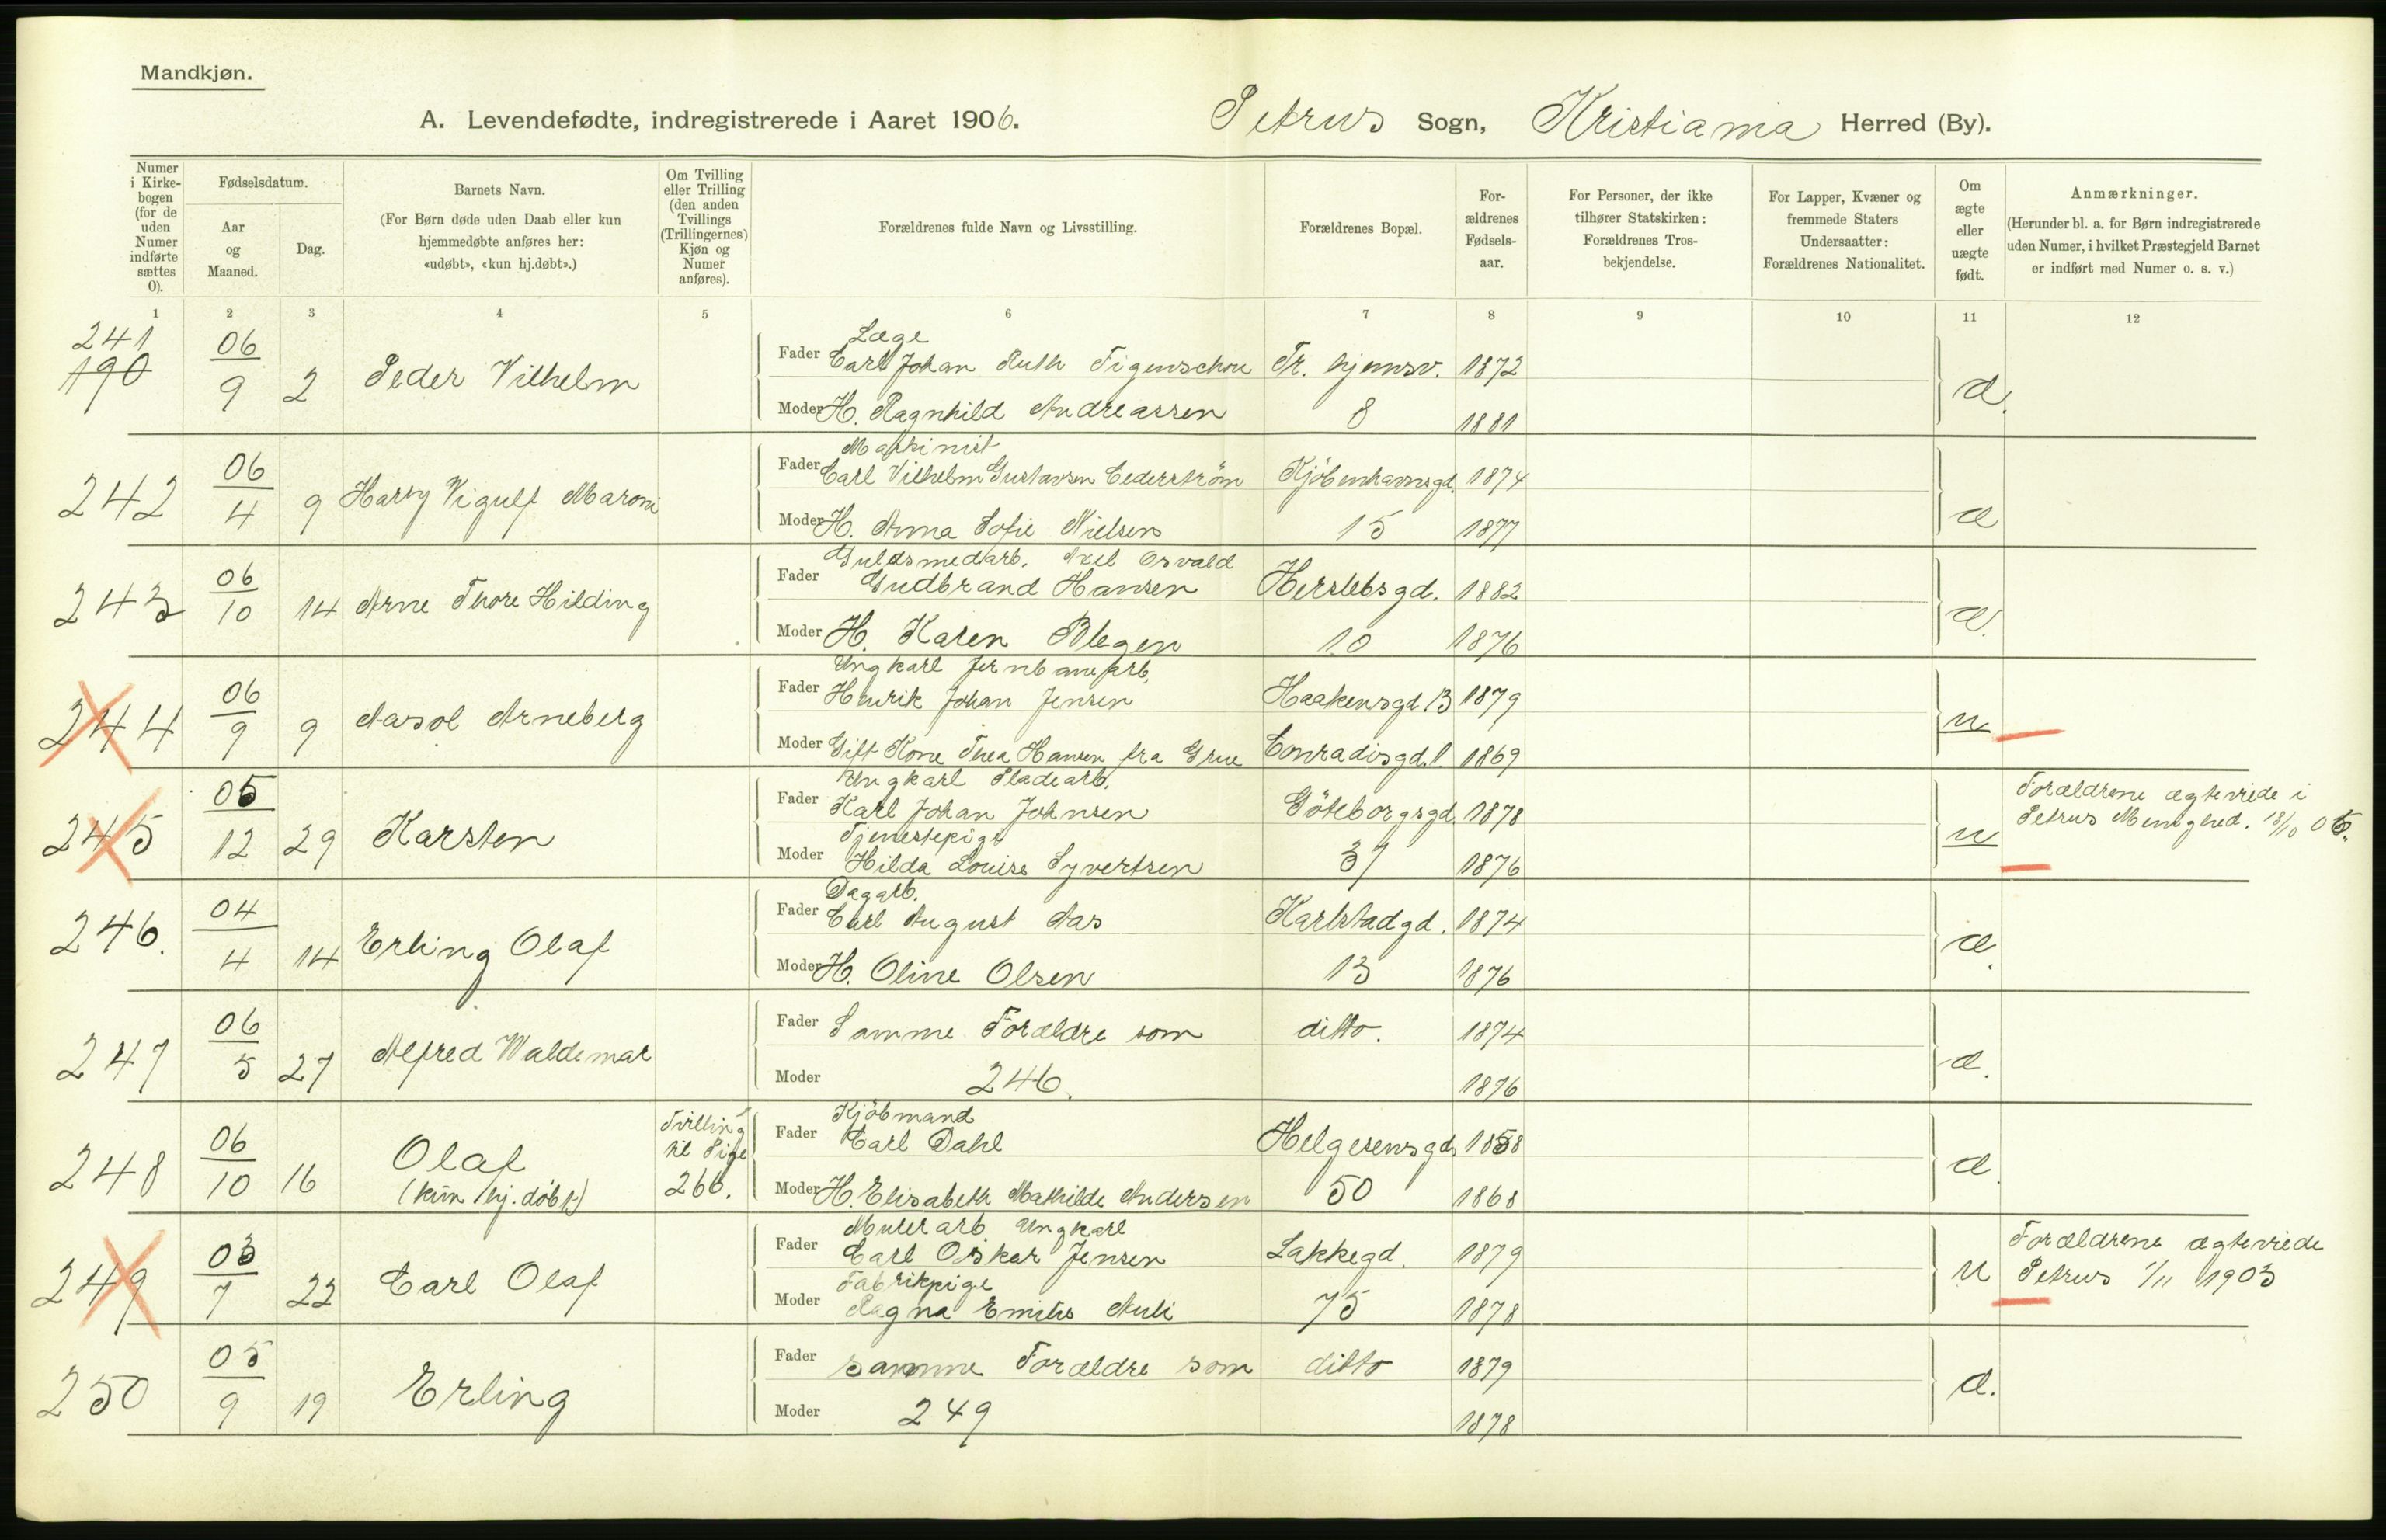 Mandkjøn.
A. Levendefødte, indregistrerede i Aaret 1906. Petrus Sogn, Kristiania Herred (By).
Numer i Kirkebogen (for de uden Numer indførte sættes 0).
Fødselsdatum.
Aar og Maaned.
Dag.
Barnets Navn.
(For Børn døde uden Daab eller kun hjemmedøbte anføres her: «udøbt», «kun hj.døbt».)
Om Tvilling eller Trilling (den anden Tvillings (Trillingernes) Kjøn og Numer anføres).
Forældrenes fulde Navn og Livsstilling.
Forældrenes Bopæl.
Forældrenes Fødselsaar.
For Personer, der ikke tilhører Statskirken: Forældrenes Trosbekjendelse.
For Lapper, Kvæner og fremmede Staters Undersaatter: Forældrenes Nationalitet.
Om ægte eller uægte født.
Anmærkninger.
(Herunder bl. a. for Børn indregistrerede uden Numer, i hvilket Præstegjeld Barnet er indført med Numer o. s. v.)
1 2 3 4 5 6 7 8 9 10 11 12
241 190 06/9 2 Peder Vilhelm
Læge
Fader Carl Johan Ruth Figenschou Tr. hjemsv. 1872 æ.
Moder H. Ragnhild Andreassen 8 1881
242 06/4 9 Harry Vigulf Maroni
Maskinist
Fader Carl Vilhelm Gustavsen Cederström Kjöbenhavnsgd. 1874 æ
Moder H. Anna Sofie Nielsen 15 1877
243 06/10 14 Arne Thore Hilding
Guldsmedarb. Axel Osvald
Fader Gudbrand Hansen Herslebsgd. 1882 æ.
Moder H. Karen Blegen 10 1876
244 06/9 9 Aasol Arneberg
Ungkarl Jernbanearb.
Fader Henrik Johan Jensen Haakensgd 13 1879 u
Moder Gift Kone Thea Hansen fra Grue Conradisgd. 1 1869
245 05/12 29 Karsten
Ungkarl Pladearb.
Fader Karl Johan Johnsen Göteborgsgd. 1878 u
Tjenestepige
Moder Hilda Louise Syvertsen 37 1876
Forældrene ægteviede i
Petrus Menighed. 18/10 06.
246. 04/4 14 Erling Olaf
Dagarb.
Fader Carl August Aas Karlstadgd. 1874 æ.
Moder H. Oline Olsen 13 1876
247 06/5 27 Alfred Waldemar
Fader Samme Forældre som ditto. 1874 æ.
Moder 246. 1876
248 06/10 16 Olaf
(kun hj. döbt)
Tvilling
til Pige
266.
Kjöbmand
Fader Carl Dahl Helgesensgd. 1858 æ.
Moder H. Elisabeth Mathilde Andersen 50 1868
249 03/7 22 Carl Olaf
Murerarb. Ungkarl
Fader Carl Oskar Jensen Lakkegd. 1879 u
Fabrikpige
Moder Ragna Emilie Auli 75 1878
Forældrene ægteviede
Petrus 1/11 1903
250 05/9 19 Erling
Fader samme Forældre som ditto 1879 æ.
Moder 249 1878